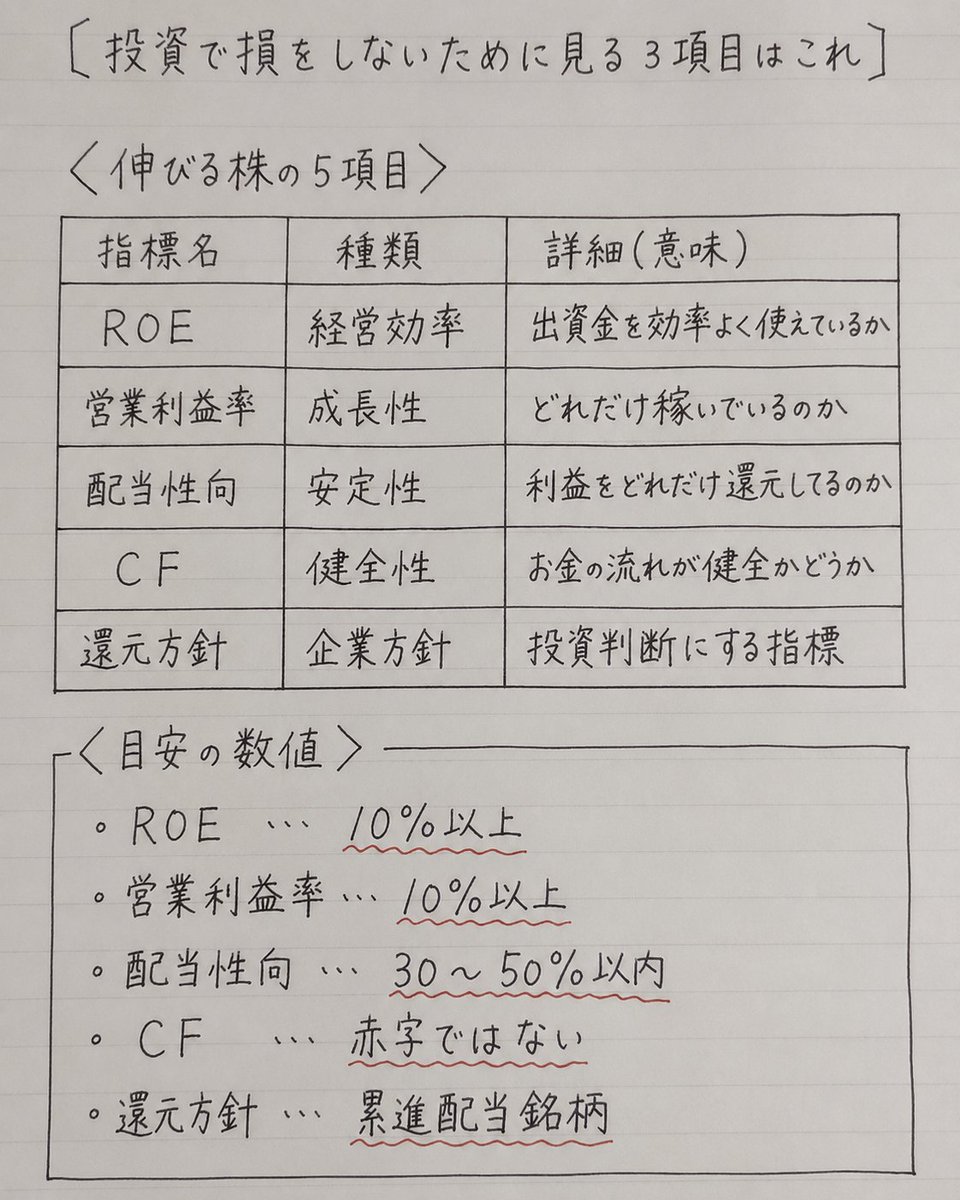 [投資で損をしないために見る3項目はこれ]
〈伸びる株の5項目〉
指標名 種類 詳細(意味)
ROE 経営効率 出資金を効率よく使えているか
営業利益率 成長性 どれだけ稼いでいるのか
配当性向 安定性 利益をどれだけ還元してるのか
CF 健全性 お金の流れが健全かどうか
還元方針 企業方針 投資判断にする指標
〈目安の数値〉
・ROE … 10%以上
・営業利益率 … 10%以上
・配当性向 … 30〜50%以内
・CF … 赤字ではない
・還元方針 … 累進配当銘柄